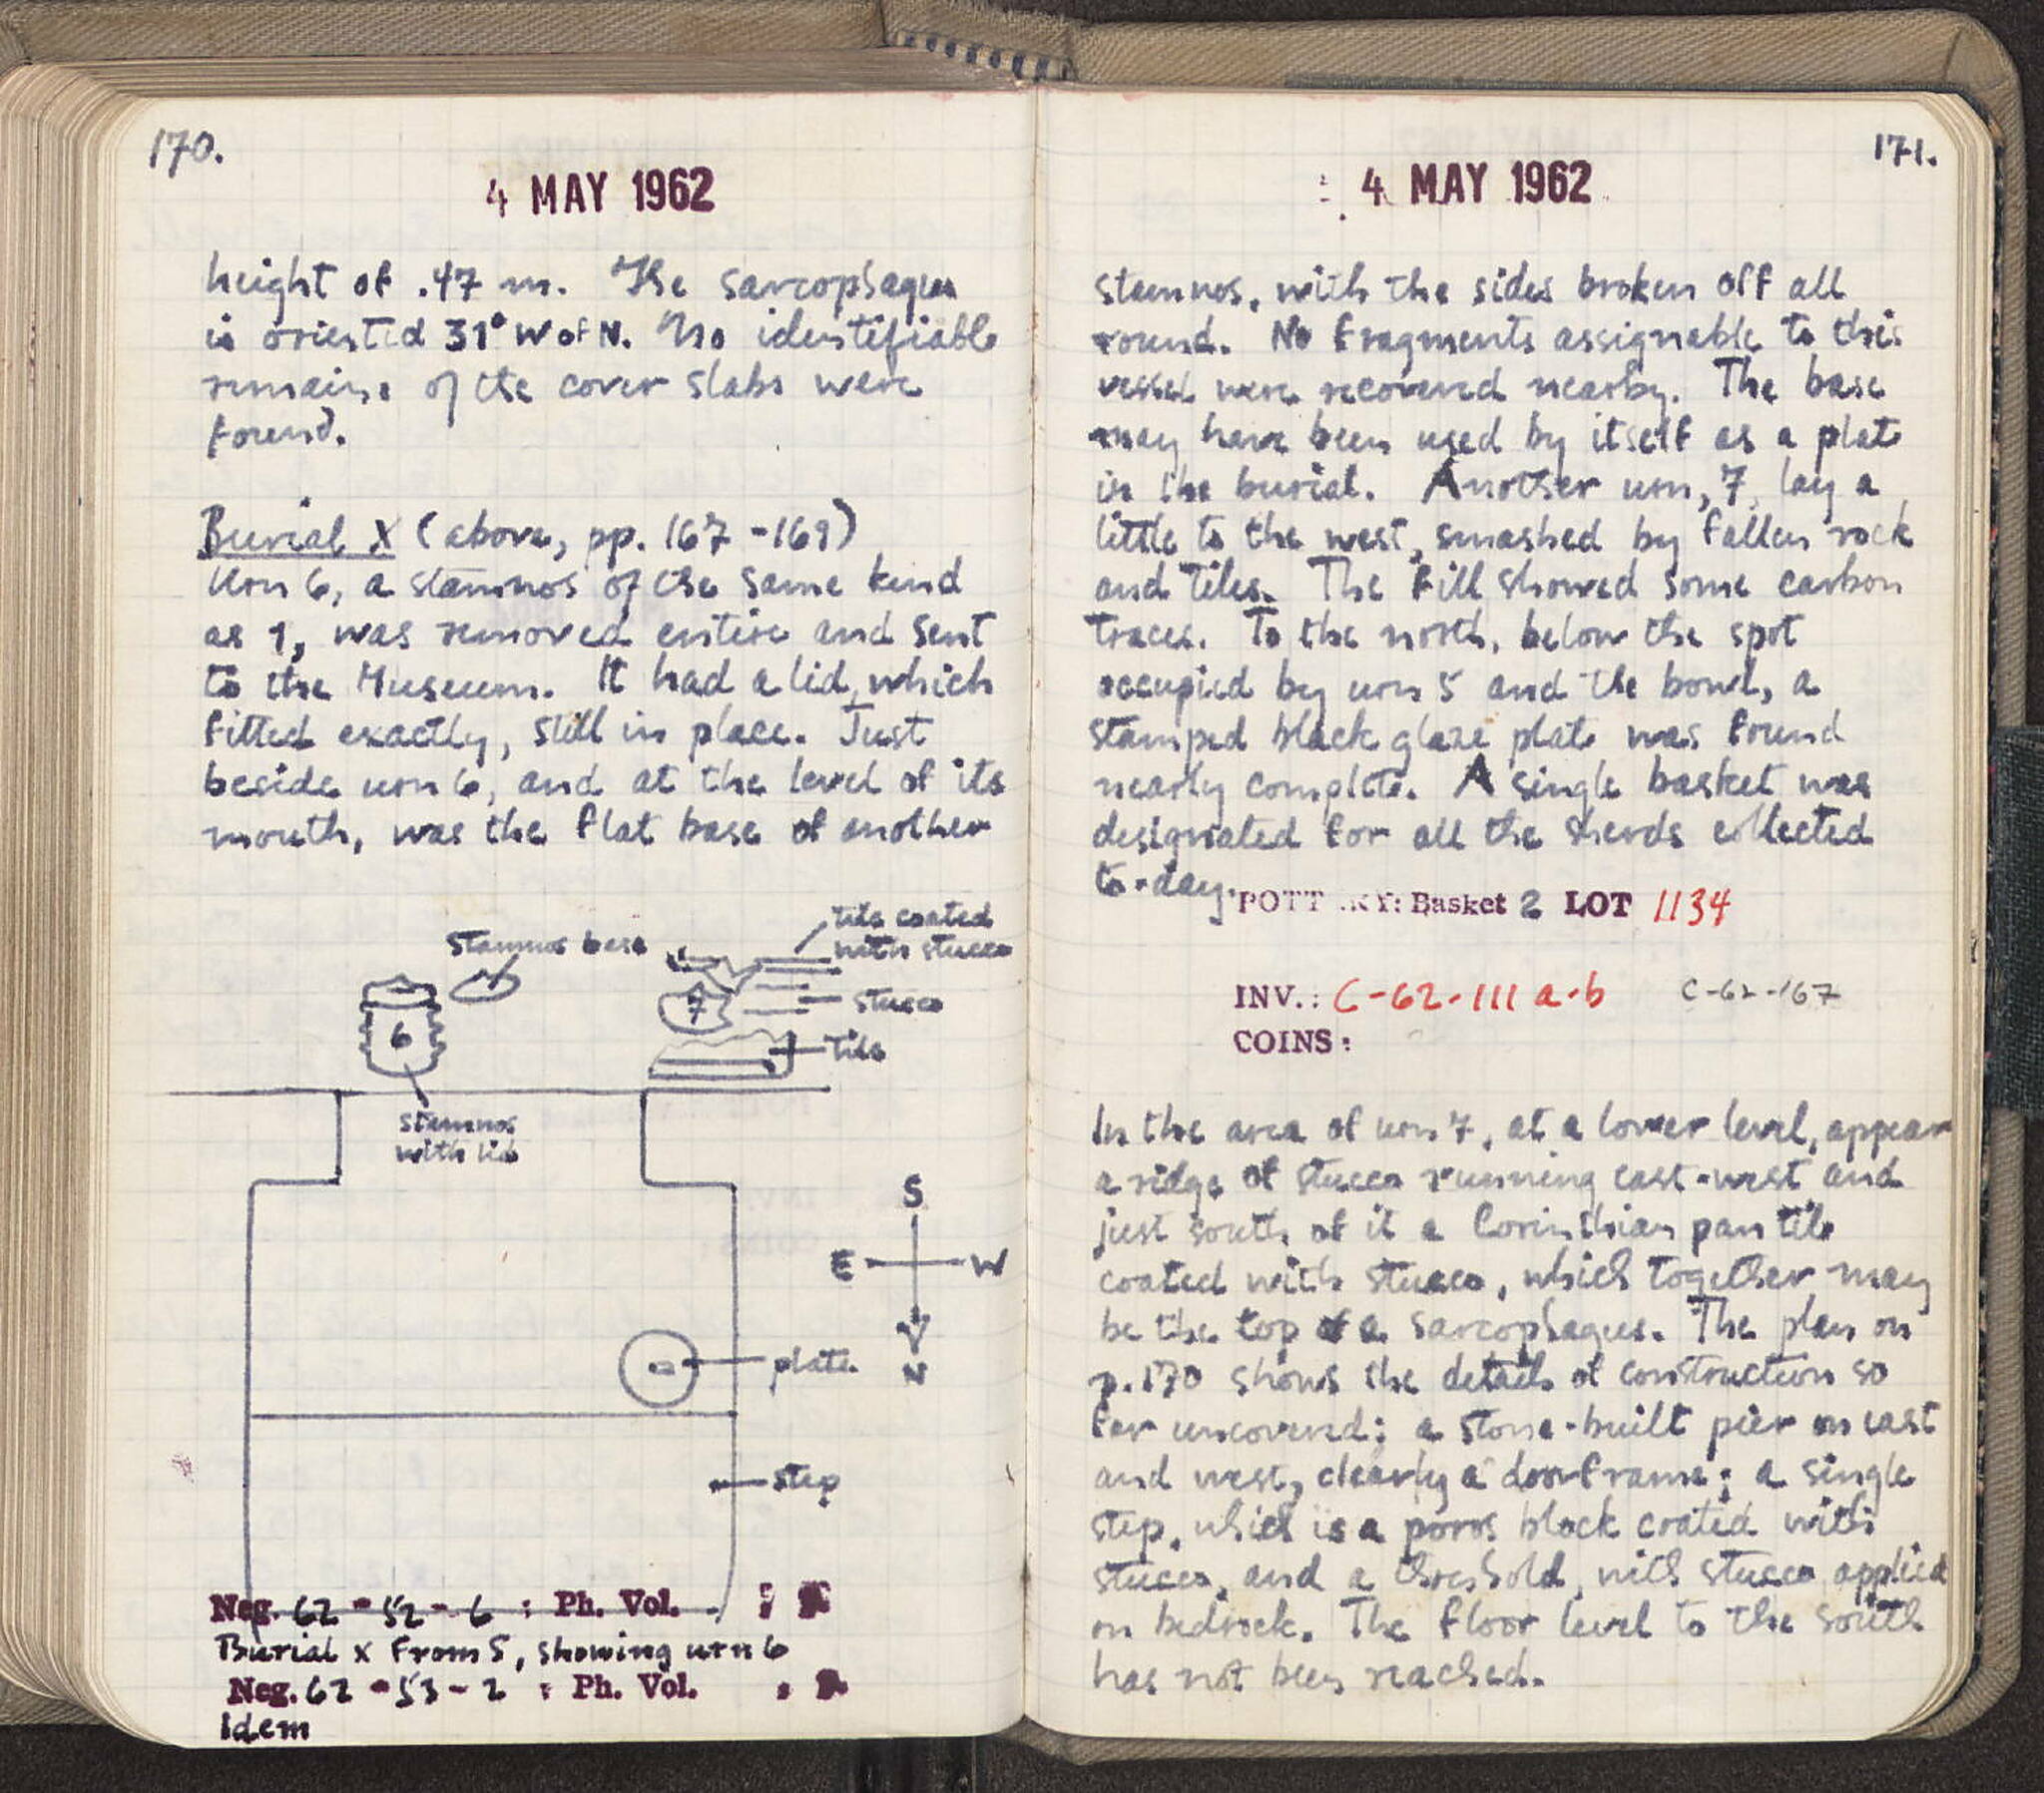 170.
4 MAY 1962
height of .47 m. The sarcophagus
is oriented 31° W of N. No identifiable
remains of the cover slabs were
found.
Burial X (above, pp. 167-169)
Urn 6, a stamnos of the same kind
as 1, was removed entire and sent
to the Museum. It had a lid, which
fitted exactly, still in place. Just
beside urn 6, and at the level of its
mouth, was the flat base of another
tile coated
with stucco
stamnos base
7
stucco
6
tile
stamnos
with lid
S
E W
N
plate
step
Neg. 62-52-6 : Ph. Vol.
Burial X From S, showing urn 6
Neg. 62-53-2 : Ph. Vol.
Idem
171.
4 MAY 1962
stamnos, with the sides broken off all
round. No fragments assignable to this
vessel were recovered nearby. The base
may have been used by itself as a plate
in the burial. Another urn, 7, lay a
little to the west, smashed by fallen rock
and tiles. The fill showed some carbon
traces. To the north, below the spot
occupied by urn 5 and the bowl, a
stamped black glaze plate was found
nearly complete. A single basket was
designated for all the sherds collected
to-day.
POTTERY: Basket 2 LOT 1134
INV.: C-62-111 a-b C-62-167
COINS:
In the area of urn 7, at a lower level, appear
a ridge of stucco running east-west and
just south of it a Corinthian pan tile
coated with stucco, which together may
be the top of a sarcophagus. The plan on
p. 170 shows the details of construction so
far uncovered: a stone-built pier on east
and west, clearly a doorframe; a single
step, which is a poros block coated with
stucco, and a threshold, with stucco applied
on bedrock. The floor level to the south
has not been reached.